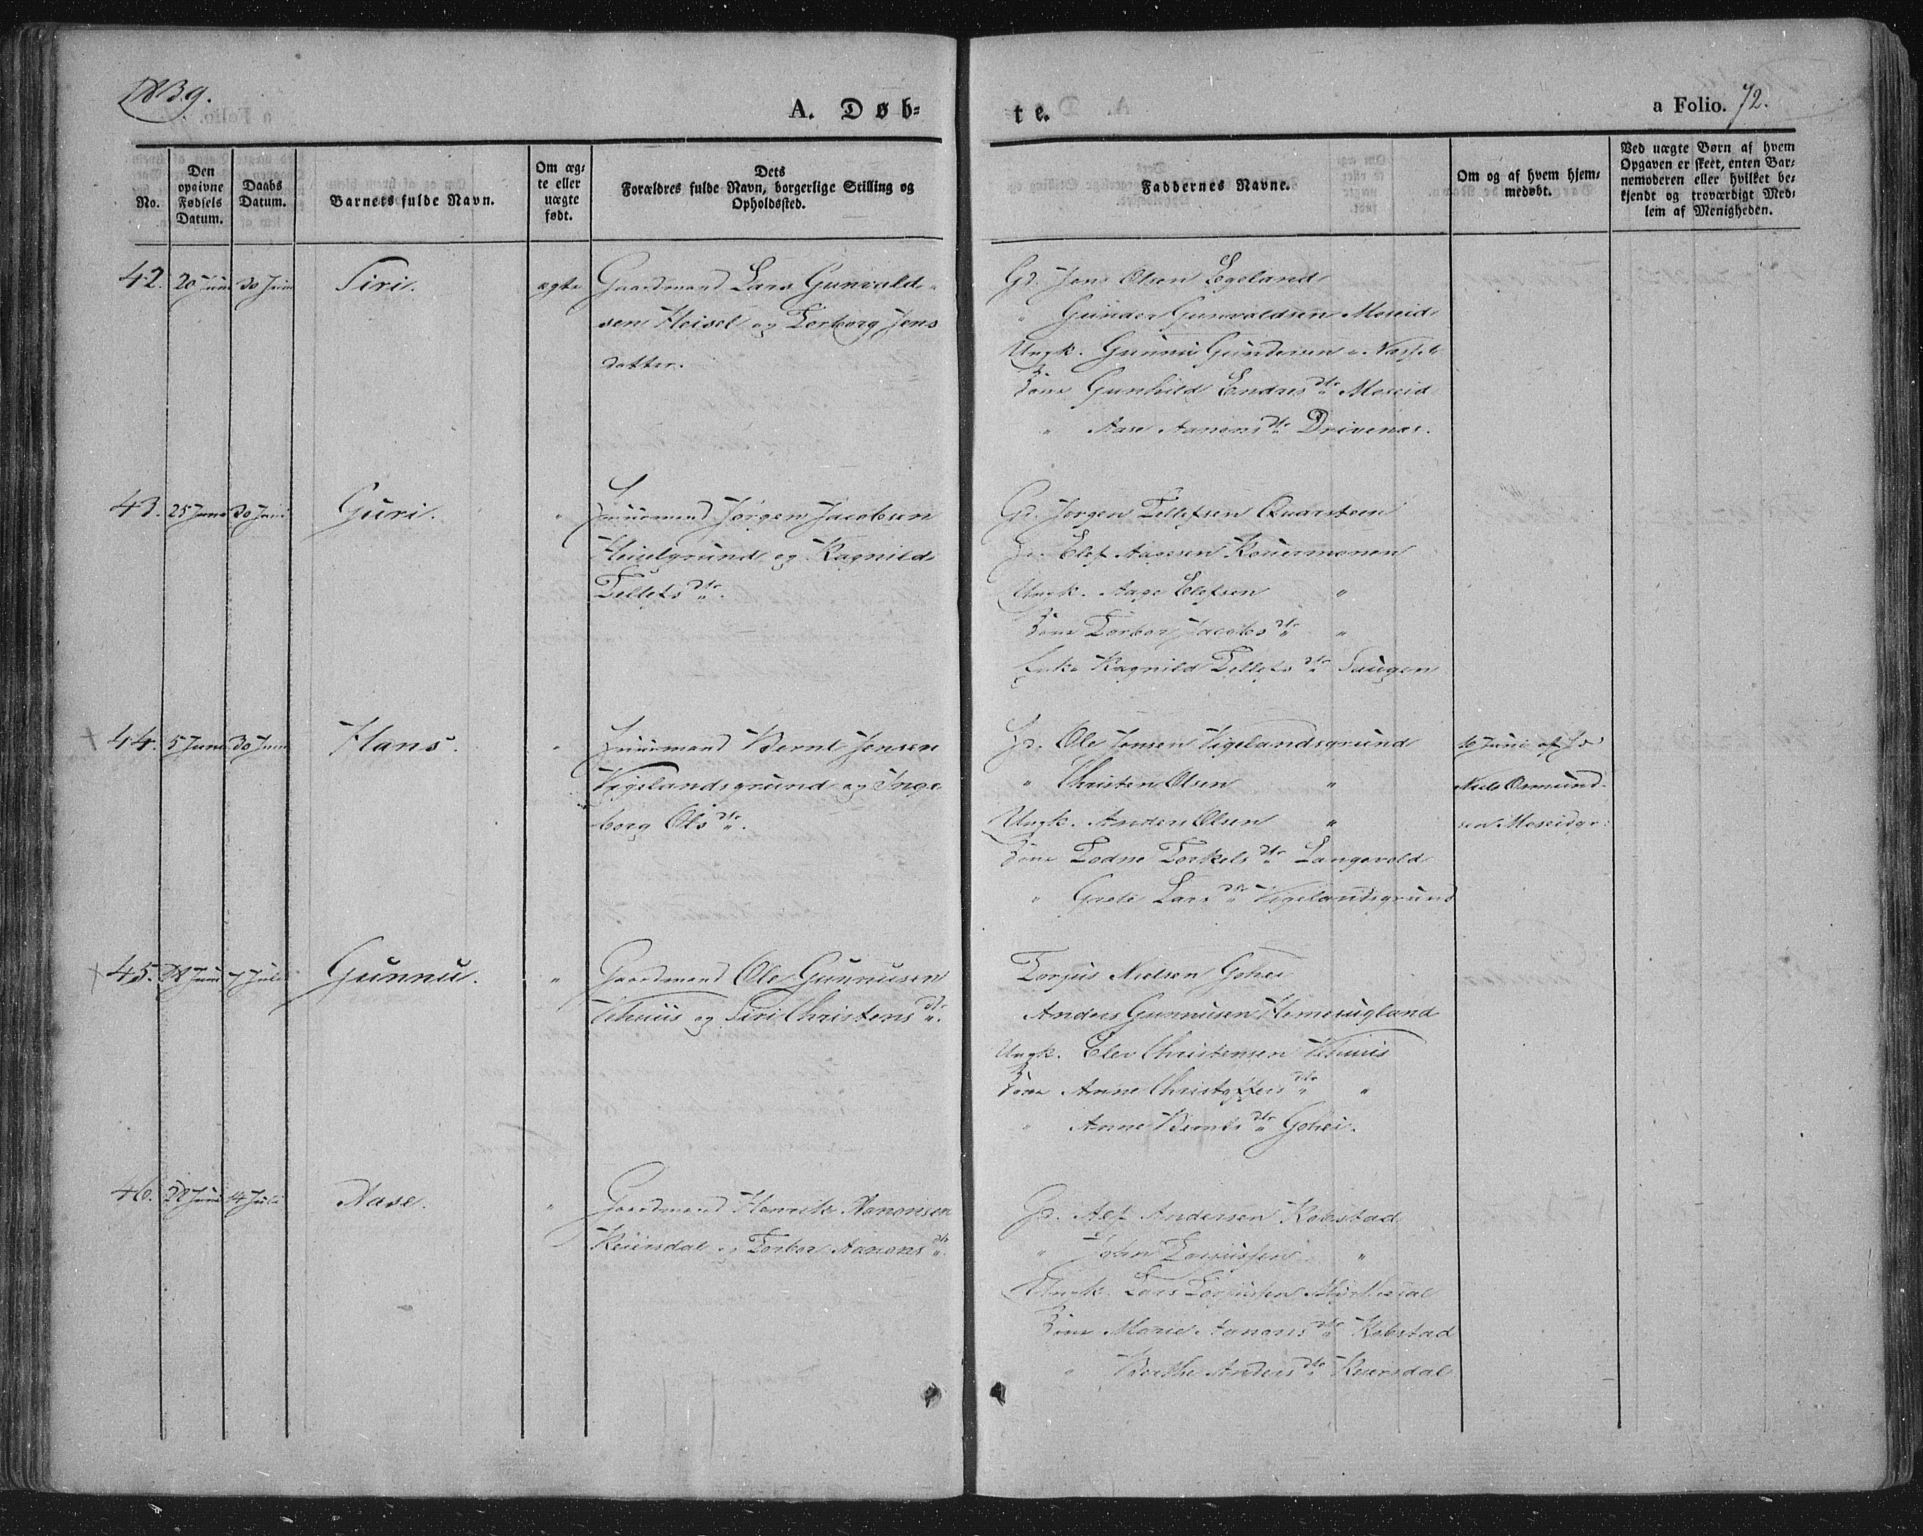 1839.
A. Døb-
te.
a Folio. 72.
No.
Den opgivne Fødsels Datum.
Daabs Datum.
Barnets fulde Navn.
Om ægte eller uægte født.
Dets Forældres fulde Navn, borgerlige Stilling og Opholdssted.
Faddernes Navne.
Om og af hvem hjemmedøbt.
Ved uægte Børn af hvem Opgaven er skeet, enten Barnemoderen eller hvilket bekjendt og troværdigt Medlem af Menigheden.
42. 20 Juni 30 Juni Siri. ægte Gaardmand Lars Gunvald-
sen Heisel og Torborg Jens
datter.
Gd. Jens Olsen Egeland
" Gunder Gunvaldsen Moseid
Ungk. Gunni Gundersen
Kone Gunhild Endres dtr Moseid
" Aase Aanons dtr Drivenæs.
43. 25 Juni 30 Juni Guri. " Huusmand Jørgen Jacobsen
Heiselgrund og Ragnild
Tellefs dtr.
Gd. Jørgen Tellefsen Quarsteen
Hr. Elef Aagesen Rouermonen
Ungk. Aage Elefsen "
Kone Torbor Jacobs dtr "
Enke Ragnild Tellefs dtr Saugen
44. 5 Juni 30 Juni Hans. " Huusmand Bernt Jensen
Vigelandsgrund og Inge
borg Ols dtr.
Hr. Ole Jensen Vigelandsgrund
" Christen Olsen "
Ungk. Anders Olsen "
Kone Todne Torkels dtr Langevold
" Grete Lars dtr Vigelandsgrund
Juni af
Niels Osmund
sen Moseidgr:
45. 28 Juni 7 Juli Gunnu. " Gaardmand Ole Gunnusen
Vehuus og Siri Christens dtr.
Torjus Nielsen Gohei
Anders Gunnusen Homesugland
Ungk. Elev Christensen Vehuus
Kone Anne Christoffers dtr "
" Anne Bernts dtr Gohei.
46. 28 Juni 14 Juli Aase. " Gaardmand Henrik Aanonsen
Keiersdal og Torbor Aanons dtr.
Gd. Alf Andersen Robstad
" John Torjussen "
Ungk. Lars Torjussen
Kone Marie Aanons dtr Robstad
" Berthe Anders dtr Keiersdal